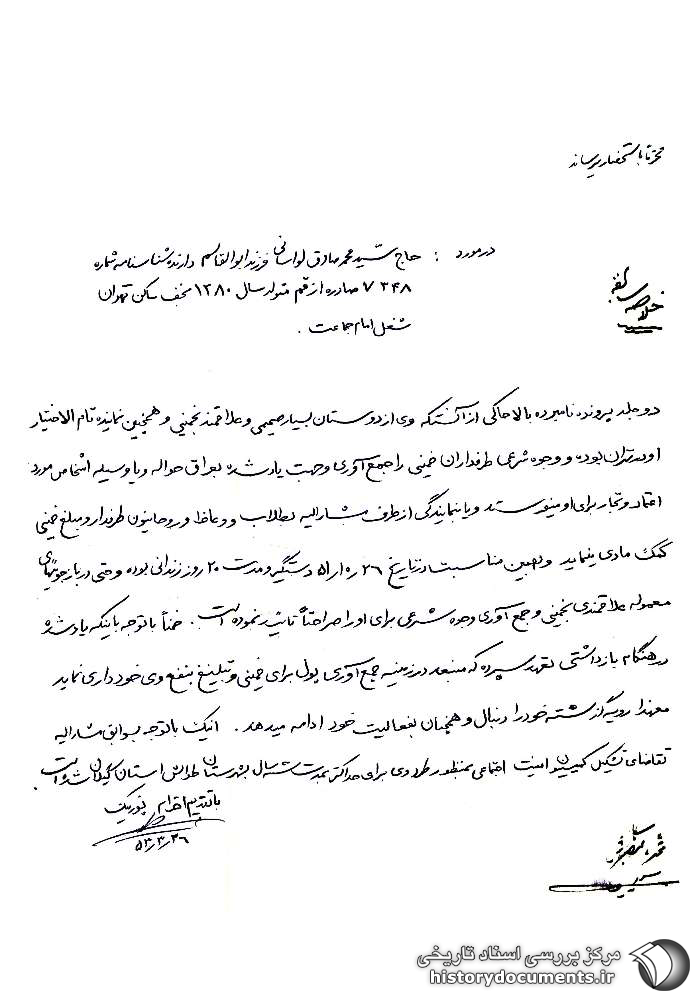 محترماً باستحضار میرساند
در مورد : حاج سید محمد صادق لواسانی فرزند ابوالقاسم دارنده شناسنامه شماره
۷۳۴۸ صادره از قم متولد سال ۱۲۸۰ نجف ساکن تهران
شغل امام جماعت .
خلاصه سابقه
دو جلد پرونده نامبرده بالا حاکی از آنستکه وی از دوستان بسیار صمیمی و علاقمند بخمینی و همچنین نماینده تام الاختیار
او در تهران بوده و وجوه شرعی طرفداران خمینی را جمع آوری و جهت یاد شده بعراق حواله و یا وسیله اشخاص مورد
اعتماد و تجار برای او میفرستد و یا بنمایندگی از طرف مشارالیه بطلاب و وعاظ و روحانیون طرفدار و مبلغ خمینی
کمک مادی مینماید و بهمین مناسبت در تاریخ ۲۶ ر۵ ر۵۱ دستگیر و مدت ۲۰ روز زندانی بوده و حتی در بازجوئیهای
معموله علاقمندی بخمینی و جمع آوری وجوه شرعی برای او را صراحتاً تائید نموده است . ضمناً با توجه باینکه یاد شده
در هنگام بازداشتی تعهد سپرده که منبعد در زمینه جمع آوری پول برای خمینی و تبلیغ بنفع وی خودداری نماید
معهذا رویه گذشته خود را دنبال و همچنان بفعالیت خود ادامه میدهد . اینک با توجه بسوابق مشارالیه
تقاضای تشکیل کمیسیون امنیت اجتماعی بمنظور طرد وی برای حداکثر بمدت سه سال بشهرستان طوالش استان گیلان شده است
با تقدیم احترام
۵۳٫۳٫۲۶
مرکز بررسی اسناد تاریخی
historydocuments.ir